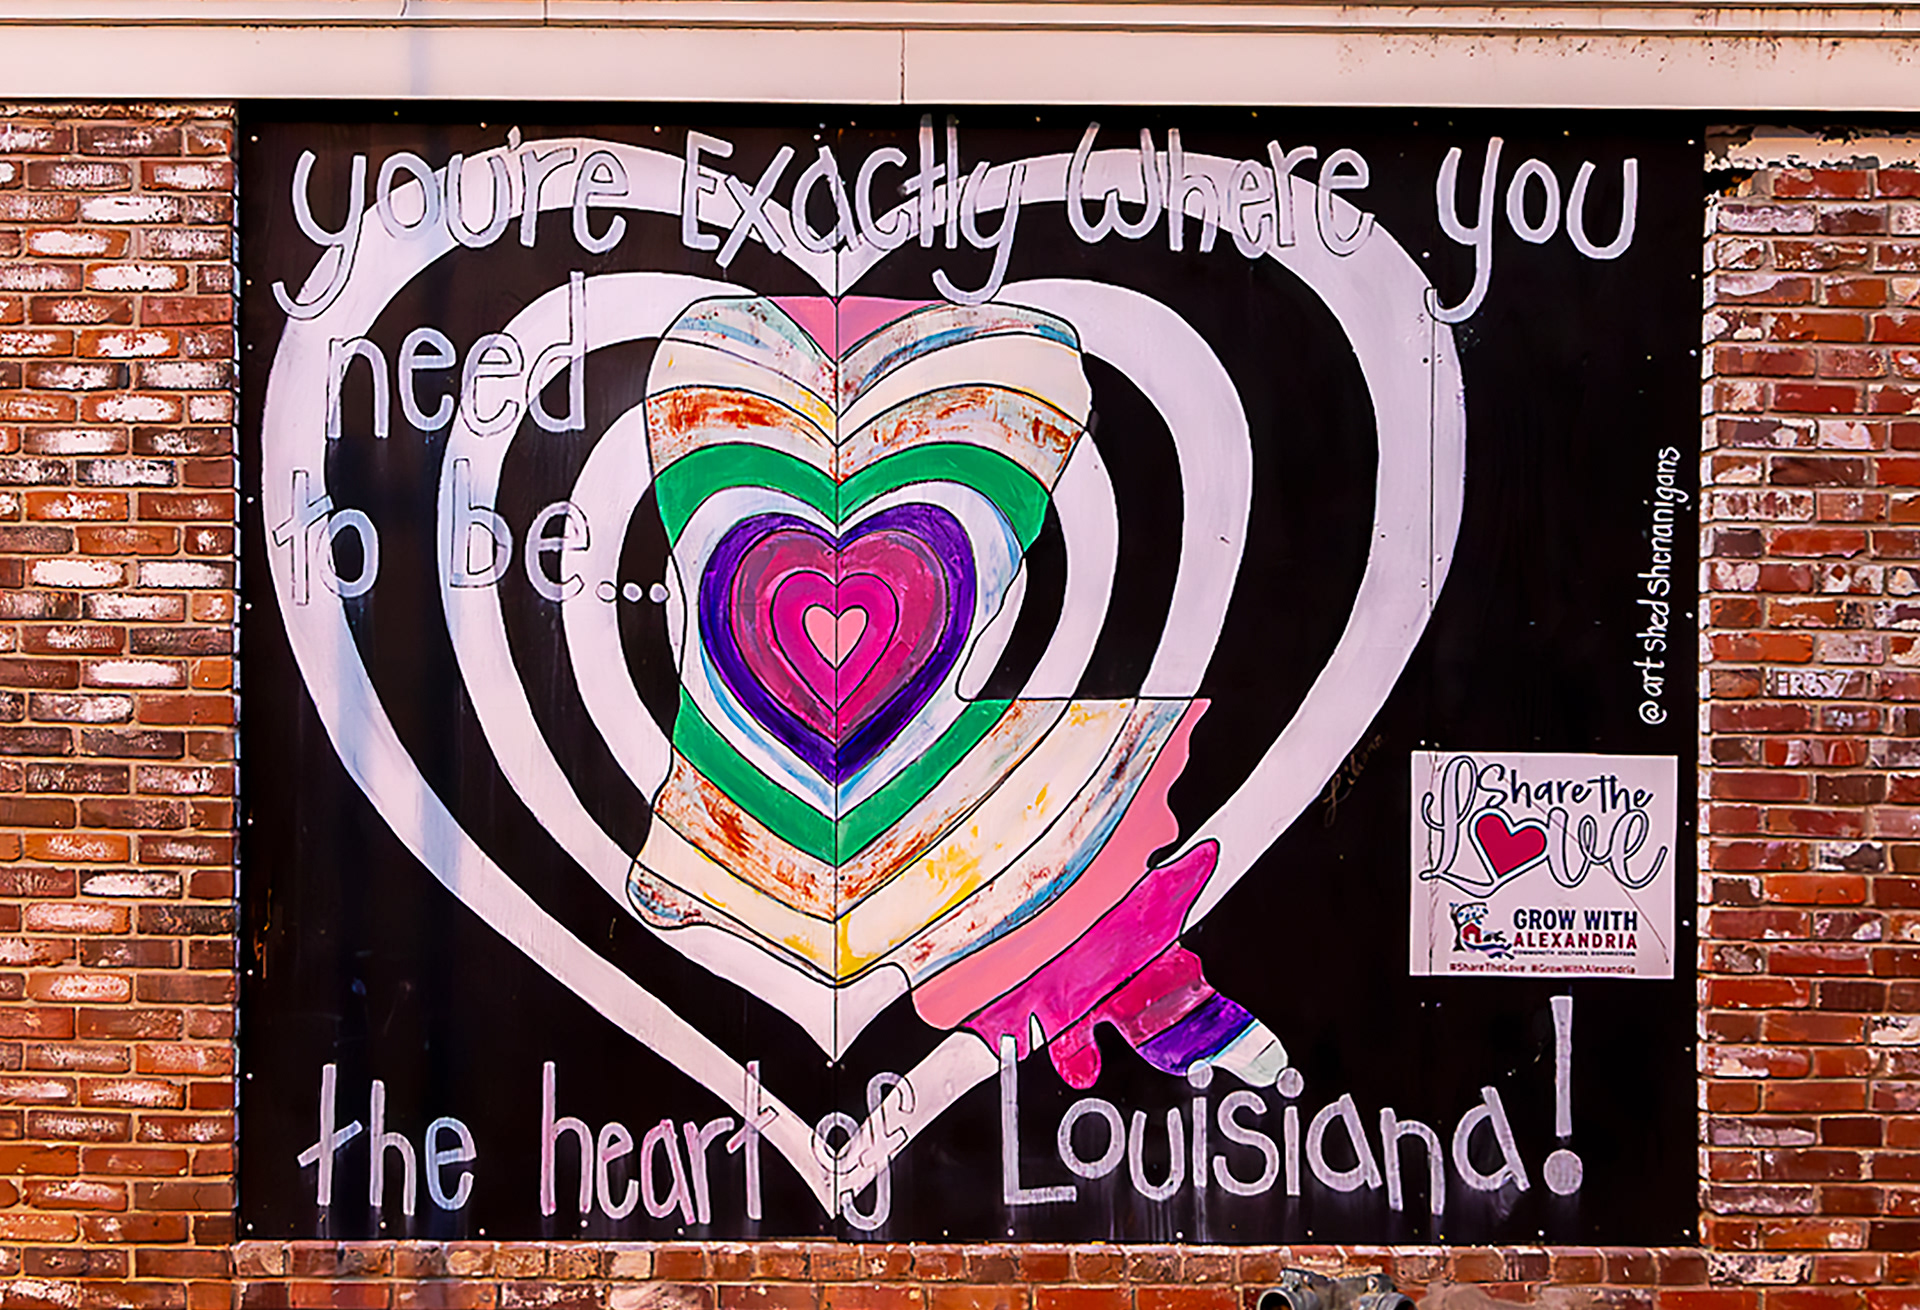 you're Exactly Where you
need
to be...
the heart of Louisiana!
@artshedshenanigans
Share the
Love
GROW WITH
ALEXANDRIA
#ShareTheLove #GrowWithAlexandria